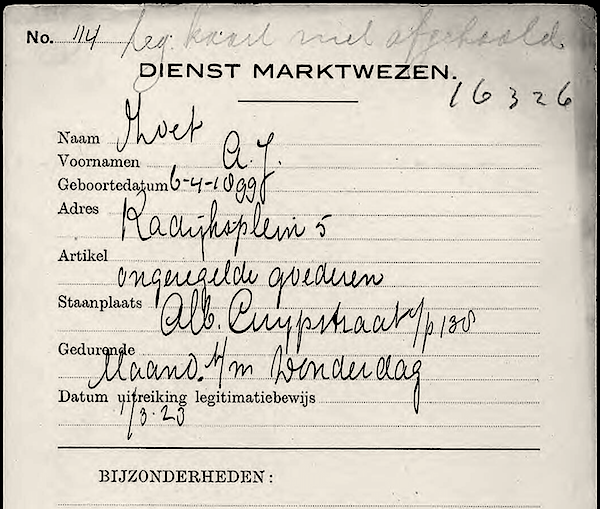 No. 114 Leg. kaart niet afgehaald
DIENST MARKTWEZEN.
16326
Naam Moet
Voornamen A. J.
Geboortedatum 6-4-1899
Adres Kadijksplein 5
Artikel ongeregelde goederen
Staanplaats Alb. Cuypstraat t/p 138
Gedurende Maand. t/m Donderdag
Datum uitreiking legitimatiebewijs
1/3.23
BIJZONDERHEDEN: